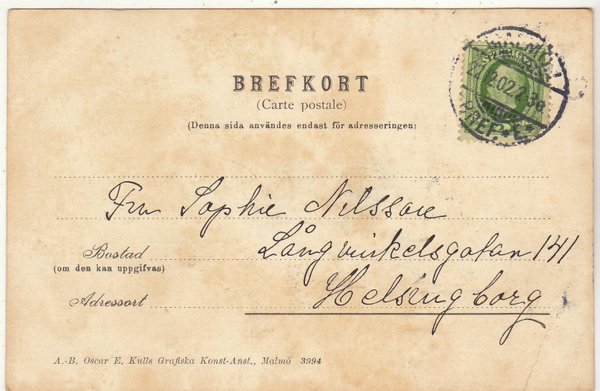 BREFKORT
(Carte postale)
(Denna sida användes endast för adresseringen)
Fru Sophie Nilsson
Bostad
(om den kan uppgifvas)
Långvinkelsgatan 141
Adressort
Helsingborg
A.-B. Oscar E. Kulls Grafiska Konst-Anst., Malmö 3994